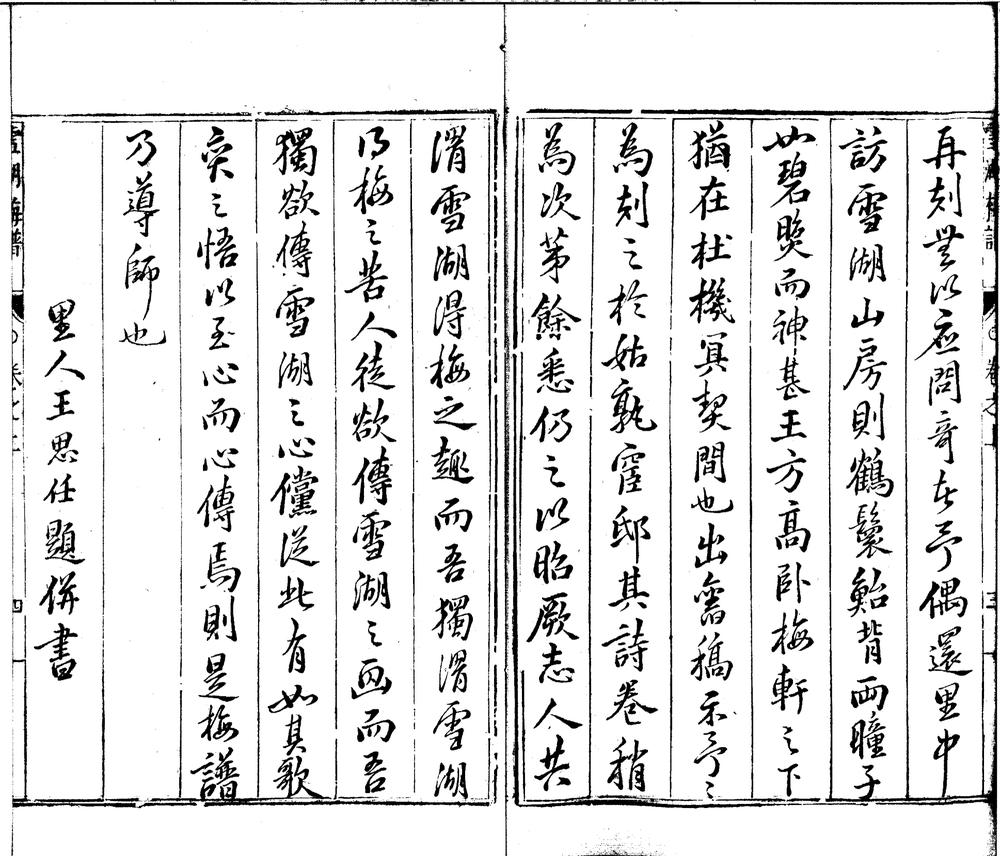 再刻無以應問奇者予偶還里中
訪雪湖山房則鶴鬢鮐背兩瞳子
如碧㷇而神甚王方高臥梅軒之下
猶在杜機冥契間也出舊稿示予〻
為刻之於姑孰宦邸其詩卷稍
為次第餘悉仍之以昭厥志人共
謂雪湖得梅之趣而吾獨謂雪湖
得梅之苦人徒欲傳雪湖之画而吾
獨欲傳雪湖之心儻從此有如其歌
奕之悟以至心而心傳焉則是梅譜
乃導師也
里人王思任題併書
雪湖梅譜
卷之上
四